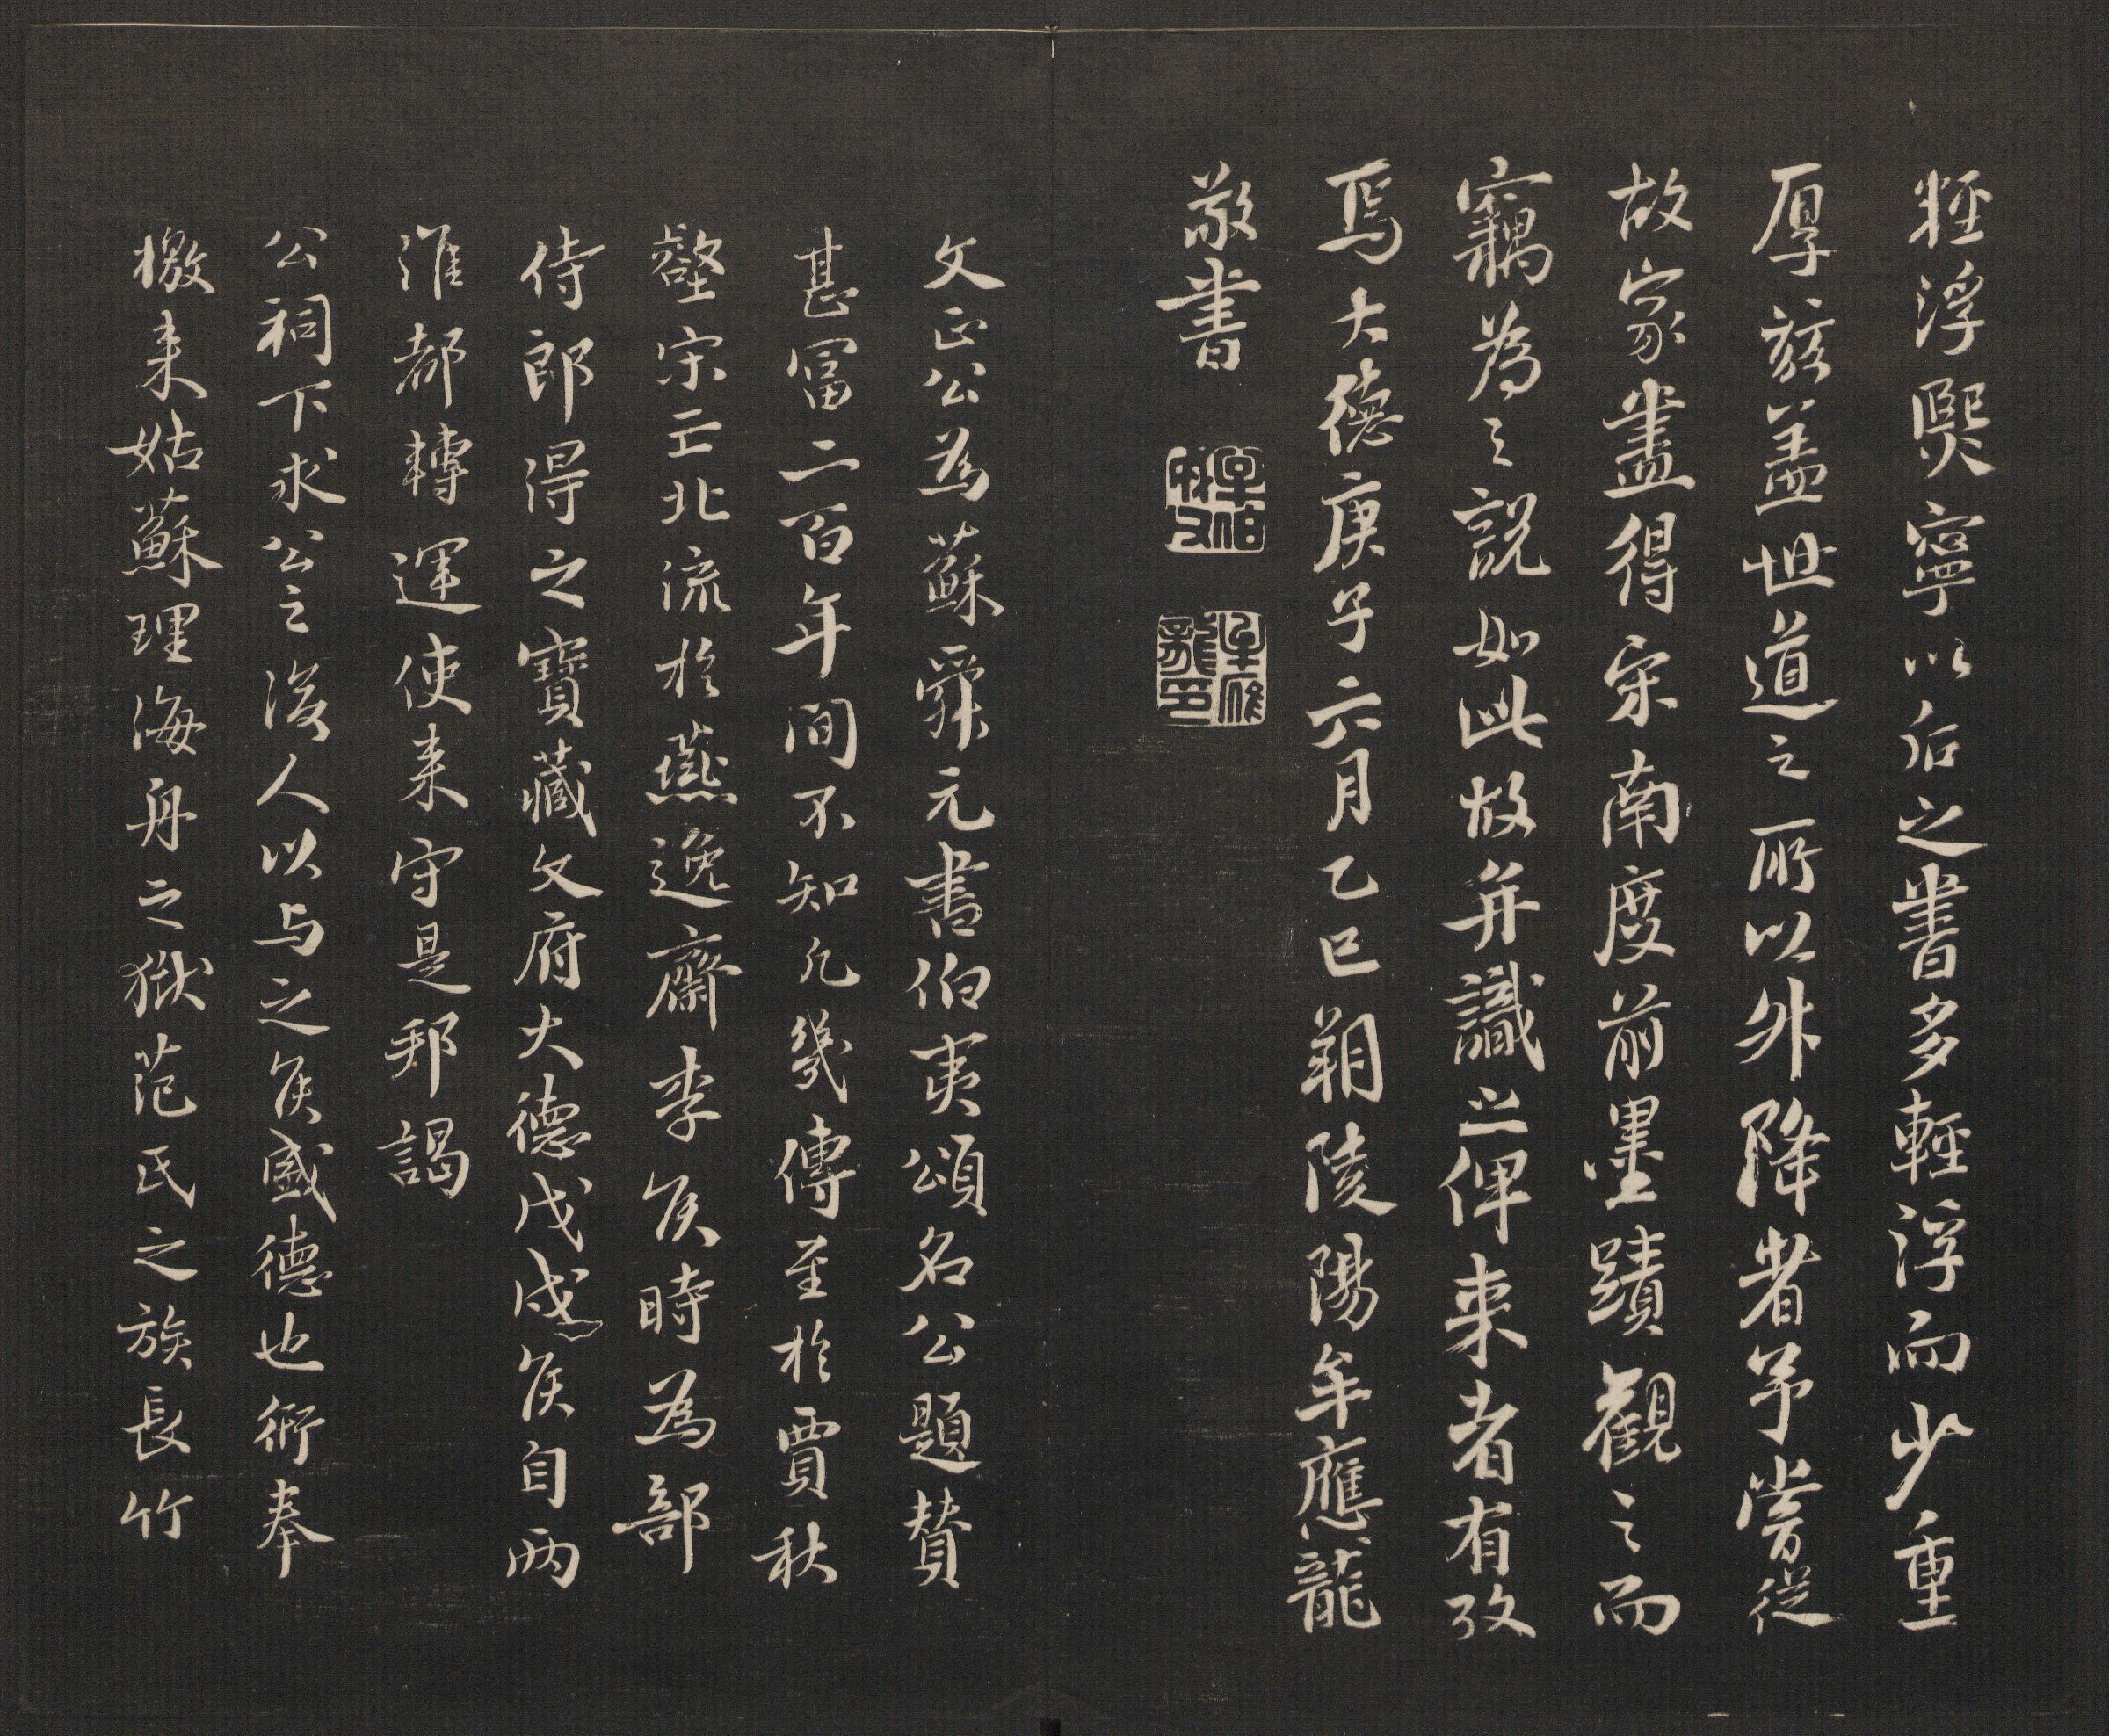 輕浮熙寧以后之書多輕浮而少重
厚玆盖世道之所以外降者予嘗從
故家盡得宋南度前墨蹟觀之而
竊為之說如此故并識之俾来者有攷
焉大德庚子六月乙巳朔陵陽牟應龍
敬書
文正公為蘇舜元書伯夷頌名公題贊
甚富二百年间不知凡幾傳至於賈秋
壑宋亡北流於燕逸齋李侯時為部
侍郎得之寶藏文府大德戊戌侯自两
淮都轉運使来守是邦謁
公祠下求公之後人以与之侯盛德也衍奉
檄来姑蘇理海舟之獄范氏之族長竹